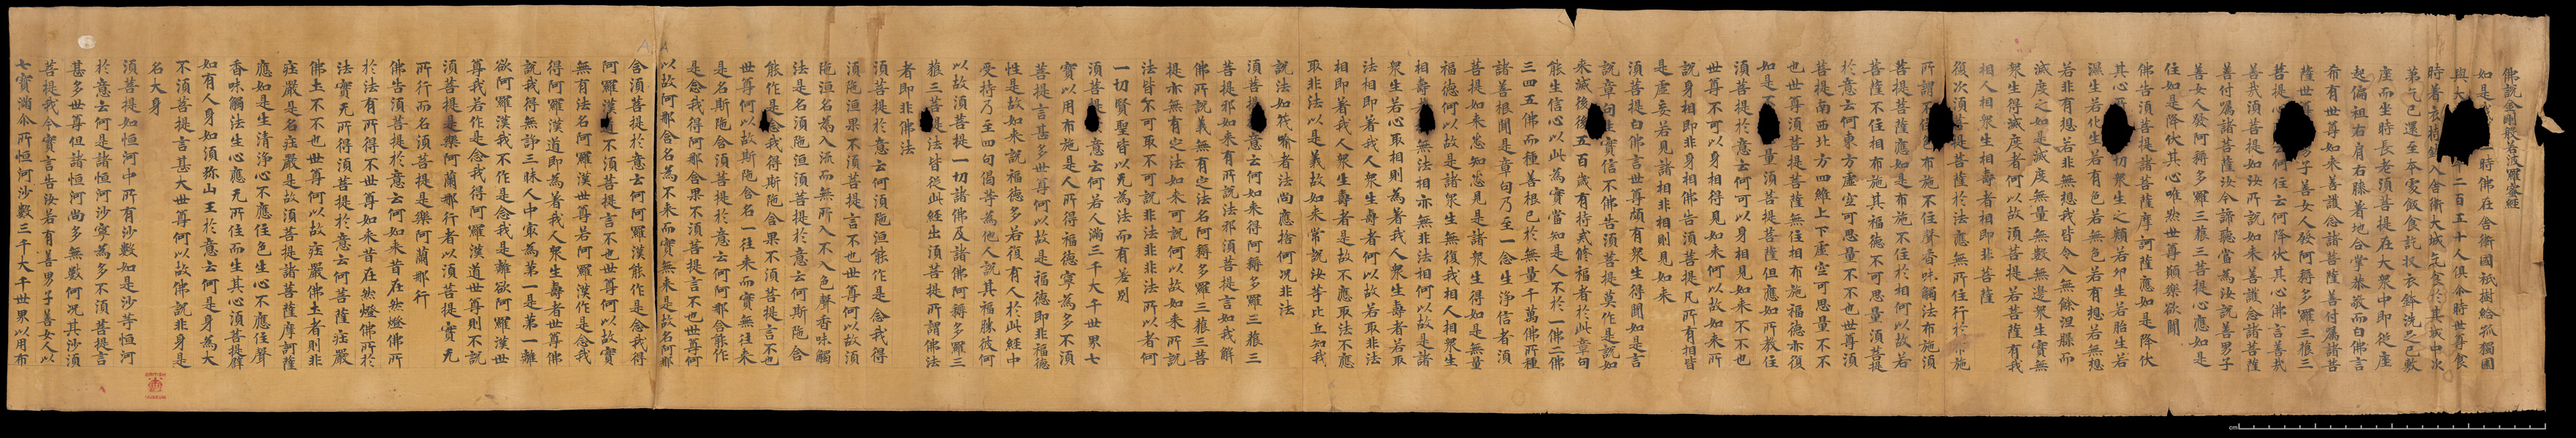 佛說金剛般若波羅蜜經
如是我一時佛在舍衛國祇樹給孤獨園
與大千二百五十人俱尒時世尊食
時著衣持鉢入舍衛大城乞食於其城中次
第乞已還至本處飯食訖收衣鉢洗足已敷
座而坐時長老須菩提在大眾中即從座
起偏袒右肩右膝著地合掌恭敬而白佛言
希有世尊如來善護念諸菩薩善付囑諸菩
薩世尊男子善女人發阿耨多羅三藐三
菩提心云何住云何降伏其心佛言善哉
善哉須菩提如汝所說如來善護念諸菩薩
善付囑諸菩薩汝今諦聽當為汝說善男子
善女人發阿耨多羅三藐三菩提心應如是
住如是降伏其心唯然世尊願樂欲聞
佛告須菩提諸菩薩摩訶薩應如是降伏
其心所切眾生之類若卵生若胎生若
濕生若化生若有色若無色若有想若無想
若非有想若非無想我皆令入無餘涅槃而
滅度之如是滅度無量無數無邊眾生實無
眾生得滅度者何以故須菩提若菩薩有我
相人相眾生相壽者相即非菩薩
復次須菩提菩薩於法應無所住行於布施
所謂不住色布施不住聲香味觸法布施須
菩提菩薩應如是布施不住於相何以故若
菩薩不住相布施其福德不可思量須菩提
於意云何東方虛空可思量不不也世尊須
菩提南西北方四維上下虛空可思量不不
也世尊須菩提菩薩無住相布施福德亦復
如是不量須菩提菩薩但應如所教住
須菩提於意云何可以身相見如來不不也
世尊不可以身相得見如來何以故如來所
說身相即非身相佛告須菩提凡所有相皆
是虛妄若見諸相非相則見如來
須菩提白佛言世尊頗有眾生得聞如是言
說章句生實信不佛告須菩提莫作是說如
來滅後後五百歲有持戒修福者於此章句
能生信心以此為實當知是人不於一佛二佛
三四五佛而種善根已於無量千萬佛所種
諸善根聞是章句乃至一念生淨信者須
菩提如來悉知悉見是諸眾生得如是無量
福德何以故是諸眾生無復我相人相眾生
相壽無法相亦無非法相何以故是諸
眾生若心取相則為著我人眾生壽者若取
法相即著我人眾生壽者何以故若取非法
相即著我人眾生壽者是故不應取法不應
取非法以是義故如來常說汝等比丘知我
說法如筏喻者法尚應捨何況非法
須菩提意云何如來得阿耨多羅三藐三
菩提耶如來有所說法耶須菩提言如我解
佛所說義無有定法名阿耨多羅三藐三菩
提亦無有定法如來可說何以故如來所說
法皆不可取不可說非法非非法所以者何
一切賢聖皆以无為法而有差別
須菩提意云何若人滿三千大千世界七
寶以用布施是人所得福德寧為多不須
菩提言甚多世尊何以故是福德即非福德
性是故如來說福德多若復有人於此經中
受持乃至四句偈等為他人說其福勝彼何
以故須菩提一切諸佛及諸佛阿耨多羅三
藐三菩提法皆從此經出須菩提所謂佛法
者即非佛法
須菩提於意云何須陁洹能作是念我得
須陁洹果不須菩提言不也世尊何以故須
陁洹名為入流而無所入不入色聲香味觸
法是名須陁洹須菩提於意云何斯陁含
能作是念我得斯陁含果不須菩提言不也
世尊何以故斯陁含名一往來而實無往來
是名斯陁含須菩提於意云何阿那含能作
是念我得阿那含果不須菩提言不也世尊何
以故阿那含名為不來而實無來是故名阿那
含須菩提於意云何阿羅漢能作是念我得
阿羅漢道不須菩提言不也世尊何以故實
無有法名阿羅漢世尊若阿羅漢作是念我
得阿羅漢道即為著我人眾生壽者世尊佛
說我得無諍三昧人中寂為第一是第一離
欲阿羅漢我不作是念我是離欲阿羅漢世
尊我若作是念我得阿羅漢道世尊則不說
須菩提是樂阿蘭那行者以須菩提實无
所行而名須菩提是樂阿蘭那行
佛告須菩提於意云何如來昔在然燈佛所
於法有所得不世尊如來昔在然燈佛所於
法實无所得須菩提於意云何菩薩莊嚴
佛土不不也世尊何以故莊嚴佛土者則非
莊嚴是名莊嚴是故須菩提諸菩薩摩訶薩
應如是生清淨心不應住色生心不應住聲
香味觸法生心應无所住而生其心須菩提譬
如有人身如須弥山王於意云何是身為大
不須菩提言甚大世尊何以故佛說非身是
名大身
須菩提如恒河中所有沙數如是沙等恒河
於意云何是諸恒河沙寧為多不須菩提言
甚多世尊但諸恒河尚多無數何況其沙須
菩提我今實言告汝若有善男子善女人以
七寶滿尒所恒河沙數三千大千世界以用布